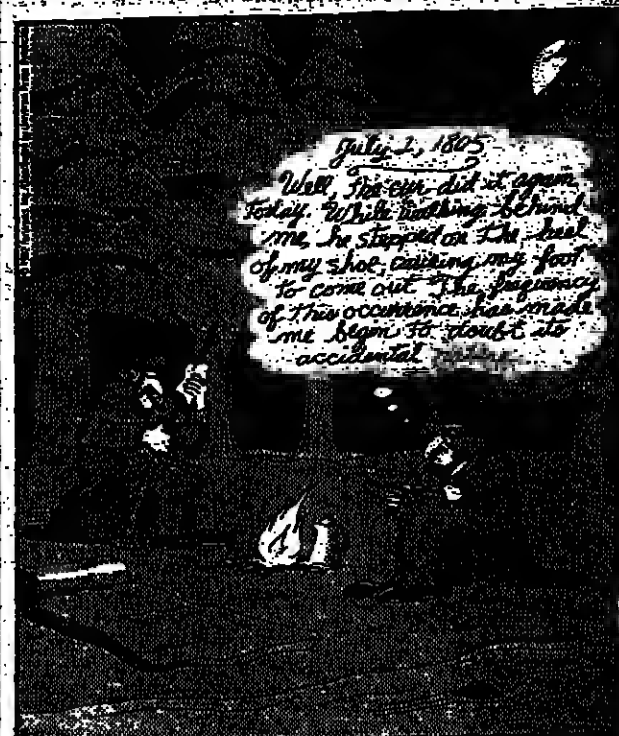 July 2, 1805
Well, the cur did it again
today. While walking behind
me, he stepped on the heel
of my shoe, causing my foot
to come out. The frequency
of this occurrence has made
me begin to doubt its
accidental